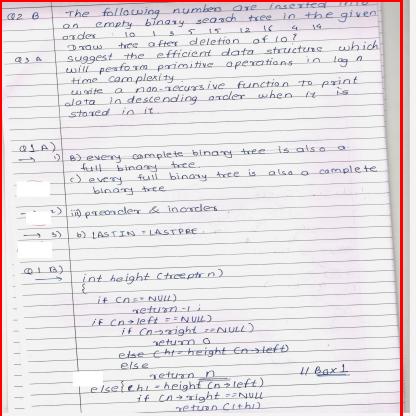 Q2 B The following number are inserted into
an empty binary search tree in the given
order. 10 1 3 5 15 12 16 9 19
Draw tree after deletion of 10?
Q3 A suggest the efficient data structure which
will perform primitive operations in log n
time complexity.
write a non-recursive function to print
data in descending order when it is
stored in it.
Q1 A)
→ 1) B) every complete binary tree is also a
full binary tree.
c) every full binary tree is also a complete
binary tree
2) iii) preorder & inorder
→ 3) b) LASTIN = LASTPRE.
Q1 B)
→ int height (treeptr n)
{
if (n == NULL)
return -1 ;
if (n→left == NULL)
if (n→right == NULL)
return 0
else (h1 = height (n→left)
else
return n // Box 1
else{ h1 = height (n→left)
if (n→right == NULL
return (1+h1)